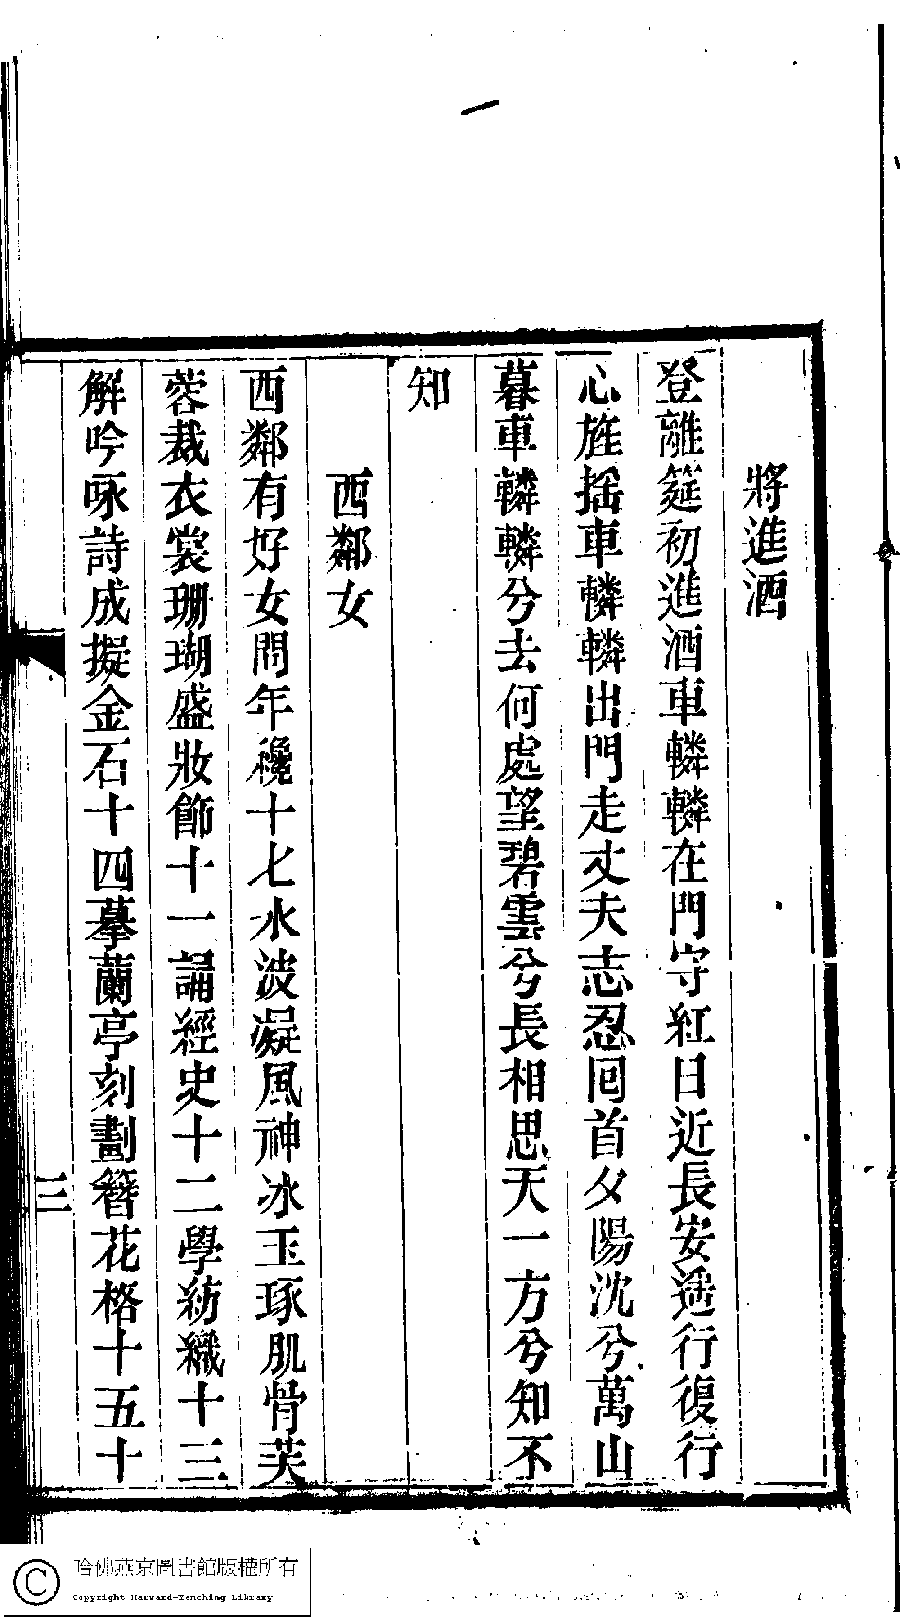 將進酒
登離筵初進酒車轔轔在門守紅日近長安遥行復行
心旌揺車轔轔出門走丈夫志忍囘首夕陽沈兮萬山
暮車轔轔兮去何處望碧雲兮長相思天一方兮知不
知
西鄰女
西鄰有好女問年纔十七水波凝風神冰玉琢肌骨芙
蓉裁衣裳珊瑚盛妝飾十一誦經史十二學紡織十三
解吟咏詩成擬金石十四摹蘭亭刻劃簪花格十五十
三
哈佛燕京圖書館版權所有
Copyright Harvard-Yenching Library